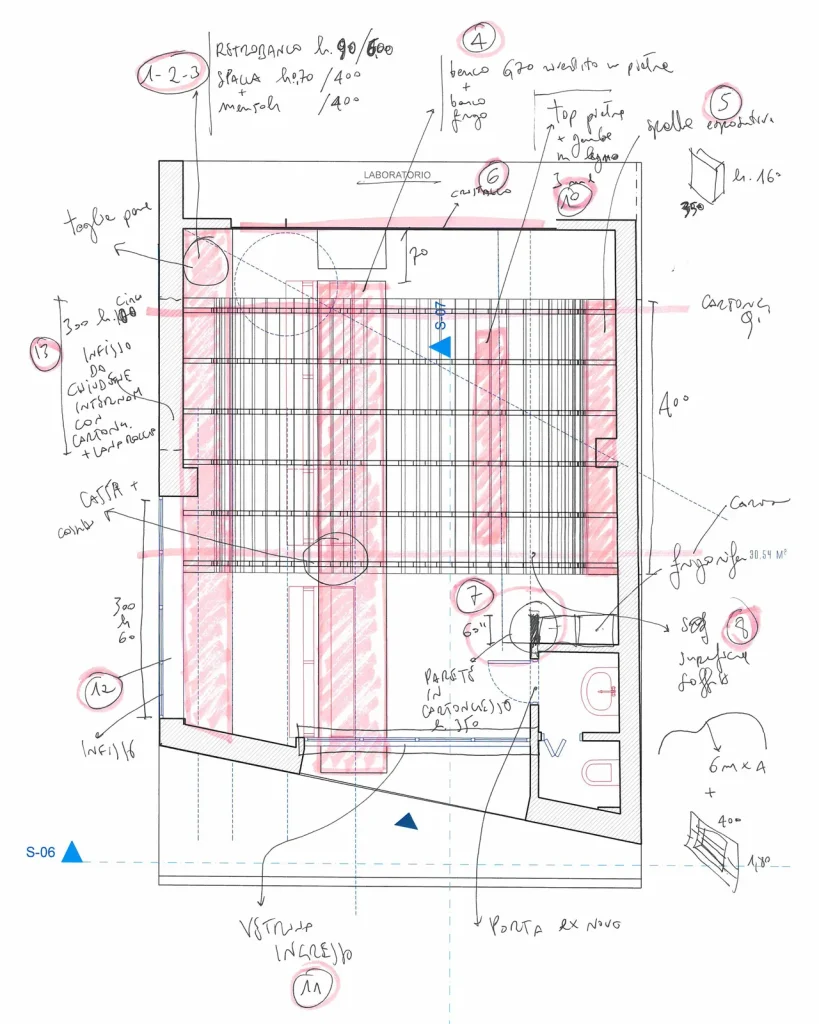 1-2-3
RETROBANCO h. 90/600
SPALLA h.170 /400
+
mensole /400
4
banco 670 rivestito in pietra
+
banco
frigo
top pietra
+ gambe
in legno
10
5
spalle espositive
h. 160
350
LABORATORIO
6
CRISTALLO
70
taglia pane
13
circa
300 h.
INFISSO
DA
CHIUDERE
INTERNAM
CON
CARTONG.
+ LANA ROCCIA
S-07
CARTONG
400
CASSA +
30.54 M²
7
60"
8
superficie
6 m x A
+
400
1,80
300
h
60
12
INFISSO
PARETE
IN
CARTONGESSO
h. 350
S-06
VETRINA
INGRESSO
11
PORTA EX NOVO